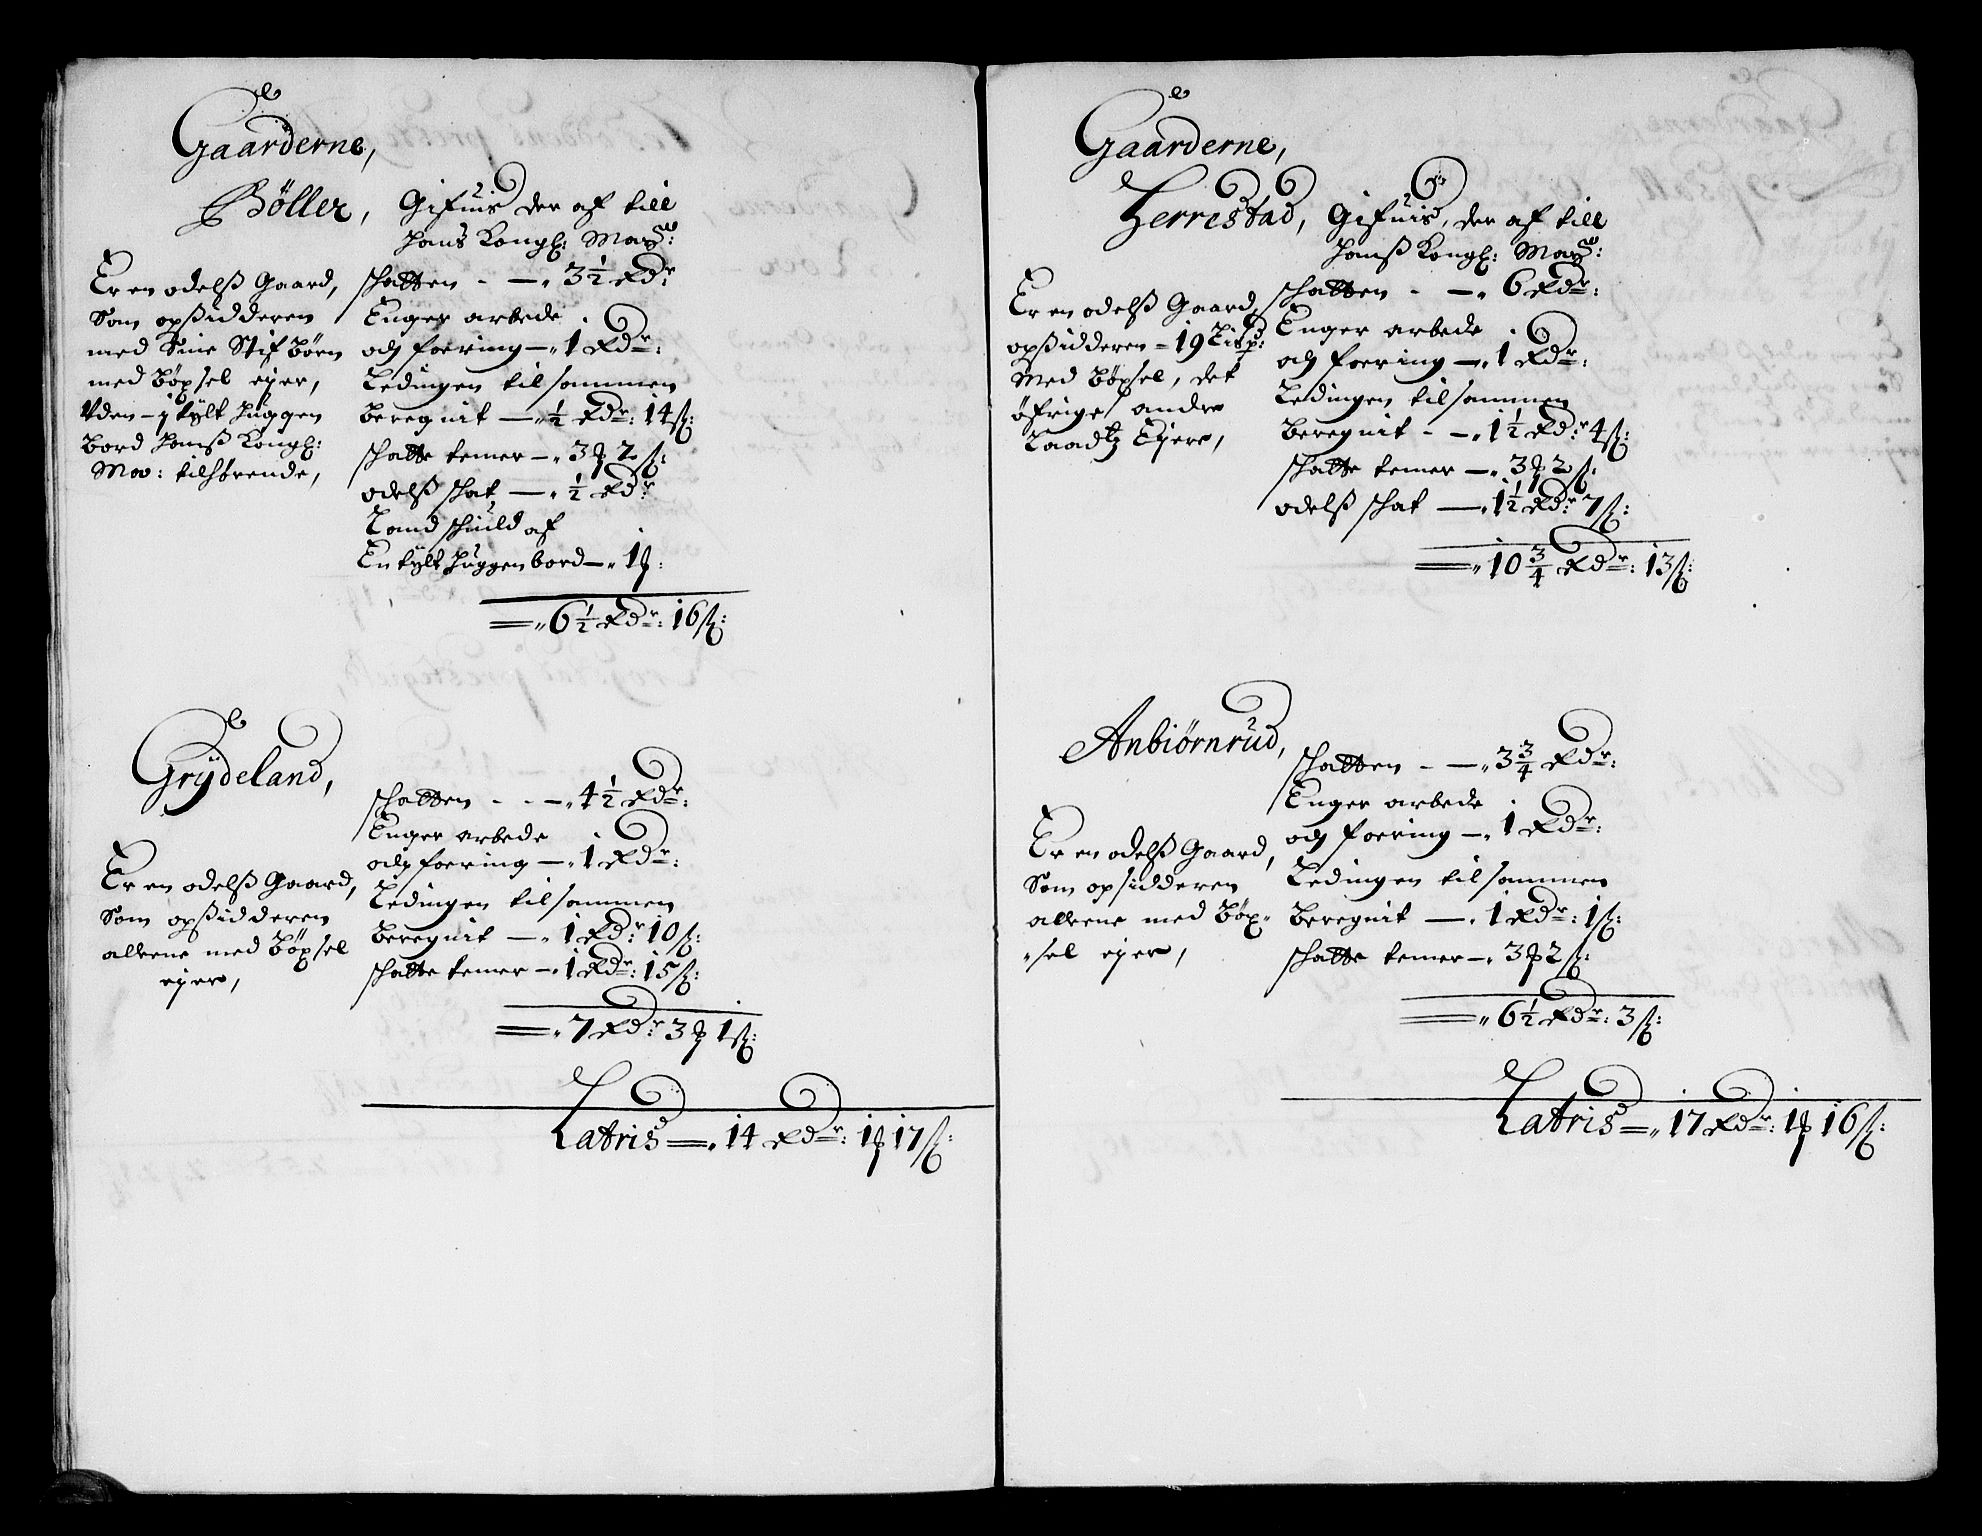 Gaarderne,
Böller,
Gifuis der af till
Hans Kongl: Maÿtt:
Er en odelß Gaard,
Som opßidderen
med Sine Stif Börn
med Böxsel ejer,
Vden - j tylt huggen
bord Hanß Kongl:
Ma: tilhörende,
schatten - - 3½ Rdr:
Enger arbede
och foering - 1 Rdr:
Ledingen til sammen
beregnit - ½ Rdr: 14 ß:
schatte temer - 3 ꝼ 2 ß:
odelß schat - ½ Rdr
Land schuld af
En tylt huggen bord - 1 ꝼ:
= 6½ Rdr: 16 ß:
Grÿdeland,
Er en odelß Gaard,
Som opßidderen
alleene med Böxsel
ejer,
schatten - - - 4½ Rdr:
Enger arbede
och foering - 1 Rdr:
Ledingen til sammen
beregnit - 1 Rdr: 10 ß:
schatte temer - 1 Rdr: 15 ß:
= 7 Rdr: 3 ꝼ 1 ß:
Latris = 14 Rdr: 1 ꝼ 17 ß:
Gaarderne,
Herrestad,
Gifuis, der af till
Hanß Kongl: Maÿtt:
Er en odelß Gaard,
opßidderen - 19 Lispd:
Med Böxsel, det
öfrige andre
Laadtz Ejere,
schatten - - 6 Rdr:
Enger arbede
och foering - 1 Rdr:
Ledingen til sammen
beregnit - - 1½ Rdr: 4 ß:
schatte temer - 3 ꝼ 2 ß:
odelß schat - 1½ Rdr: 7 ß:
= 10¾ Rdr: 13 ß:
Anbiørnrud,
Er en odelß Gaard,
Som opsidderen
alleene med Böx-
sel ejer,
schatten - - 3¾ Rdr:
Enger arbede
och foering - 1 Rdr:
Ledingen til sammen
beregnit - 1 Rdr: 1 ß:
schatte temer - 3 ꝼ 2 ß:
= 6½ Rdr: 3 ß:
Latris = 17 Rdr: 1 ꝼ 16 ß: